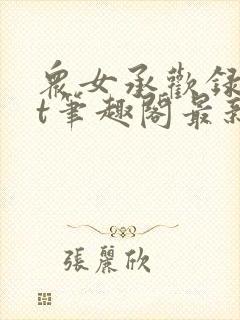 眾女承歡録
t筆趣閣最新
張麗欣